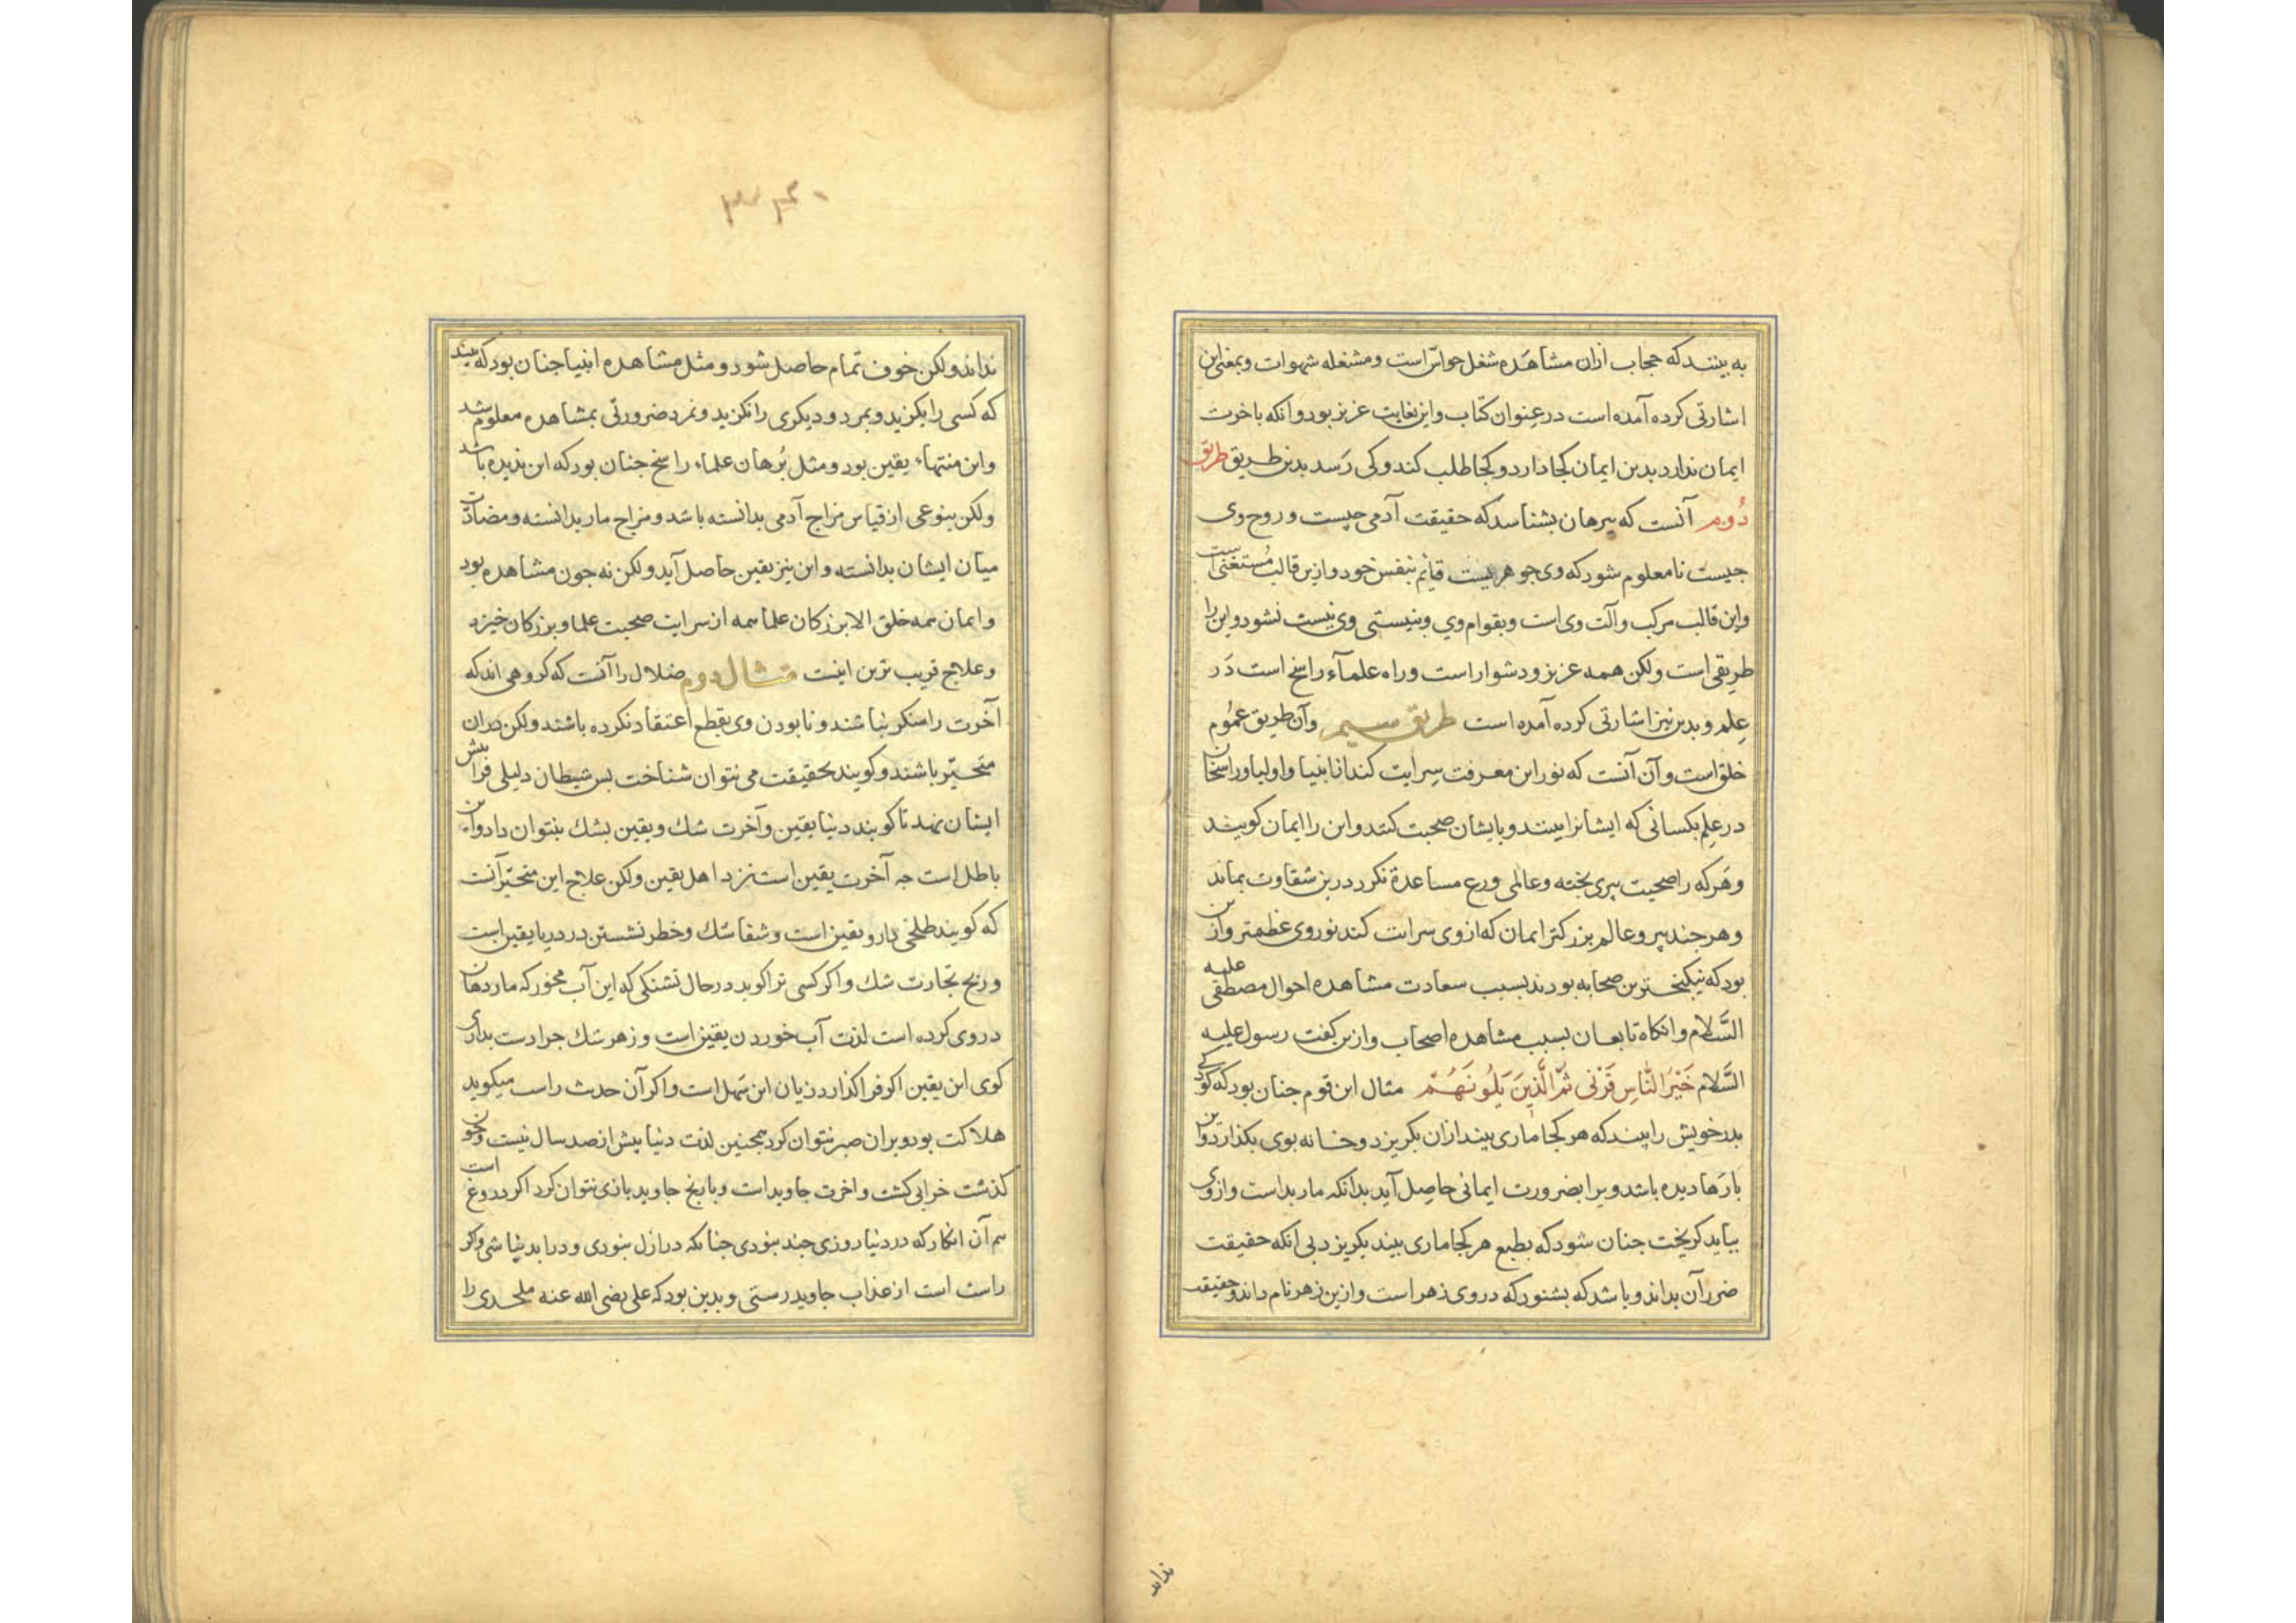 به بینند که حجاب ازان مشاهَده شغل حواسّ است ومشغله شهوات وبمغنی این
اشارتی کرده آمده است در عنوان کتاب واین بغایت عزیز بود وانکه باخرت
ایمان ندارد بدین ایمان کجا دارد و کجا طلب کند وکی رَسد بدین طریق طریق
دُوم آنست که ببرهان بشناسد که حقیقت آدمی چیست و روح وی
جیست تا معلوم شود که وی جوهریست قائم بنفس خود وازین قالب مُستغنی است
واین قالب مرکب وآلت وی است وبقوام وی وبنیستی وی نیست نشود واین را
طریقی است ولکن همه عزیز ودشوار است وراه علمآء راسخ است دَر
عِلم وبدین نیز اشارتی کرده آمده است طریق سیم وآن طریق عمُوم
خلق است وآن آنست که نور این معرفت سِرایت کند از انبیا واولیا وراسخان
در عِلم بکسانی که ایشانرا بینند وبایشان صحبت کنند واین را ایمان کویند
وهَر که را صحبت پیری پخته وعالمی ورع مساعدة نکرد درین شقاوت بماند
وهر جند پیر وعالم بزرکتر ایمان که از وی سرایت کند نور وی عظمتر وازین
بود که نیکبخترین صحابه بودند بسبب سعادت مشاهده احوال مصطفی علیه
السَّلام وانکاه تابعان بسبب مشاهده اصحاب وازین کفت رسول علیه
السَّلام خَیْرُ النَّاسِ قَرْنی ثمَّ الَّذِینَ یَلُونَهُمْ مثال این قوم جنان بود که کودکی
پدر خویش را بیند که هر کجا ماری بیند ازان بکریزد وخانه بوی بکذارد واین
بارَها دیده باشد ویرا بضرورت ایمانی حاصِل آید بدانکه مار بداست وازوی
بباید کریخت جنان شود که بطبع هر کجا ماری بیند بکریزد بی انکه حقیقت
ضرر آن بداند وباشد که بشنود که در وی زهر است وازین زهر نام داند وحقیقت
نداند
نداند ولکن خوف تمام حاصل شود ومثل مشاهده انبیا جنان بود که بیند
که کسی را بکزید وبمرد ودیکری را نکزید ونمرد ضرورتی بمشاهده معلوم شد
واین منتهاء یقین بود ومثل بُرهان علماء راسخ جنان بود که این ندیده باشد
ولکن بنوعی از قیاس مزاج آدمی بدانسته باشد ومزاج مار بدانسته ومضادّت
میان ایشان بدانسته واین نیز یقین حاصل آید ولکن نه جون مشاهده بود
وایمان همه خلق الا بزرکان علما همه از سرایت صحبت علما وبزرکان خیزد
وعلاج قریب ترین اینست مثال دوم ضلال را آنست که کروهی اند که
آخرت را منکر نباشند ونابودن وی بقطع اعتقاد نکرده باشند ولکن دران
متحیّر باشند وکویند بحقیقت می نتوان شناخت پس شیطان دلیلی فرا پیش
ایشان نهد تا کویند دنیا یقین وآخرت شك ویقین بشك بنتوان داد واین
باطل است جه آخرت یقین است نزد اهل یقین ولکن علاج این متحیّر آنست
که کویند طلخی دارو یقین است وشفا شك وخطر نشستن در دریا یقین است
وربح تجارت شك واکر کسی ترا کوید در حال تشنکی که این آب مخور که مار دهان
در وی کرده است لذت آب خوردن یقین است وزهر شك جرا دست بداری
کوی این یقین اکر فرا کذارد زیان این سَهل است واکر آن حدث راست میکوید
هلاکت بود وبران صبر نتوان کرد همجنین لذت دنیا بیش از صد سال نیست وجون
کذشت خرابی کشت واخرت جاوید است وبا رنج جاوید بازی نتوان کرد اکر دروغ است
هم آن انکار که در دنیا روزی جند نبودی جنانکه در ازل نبودی ودر ابد نباشی واکر
راست است از عذاب جاوید رستی وبدین بود که علی رضی الله عنه ملحدی را